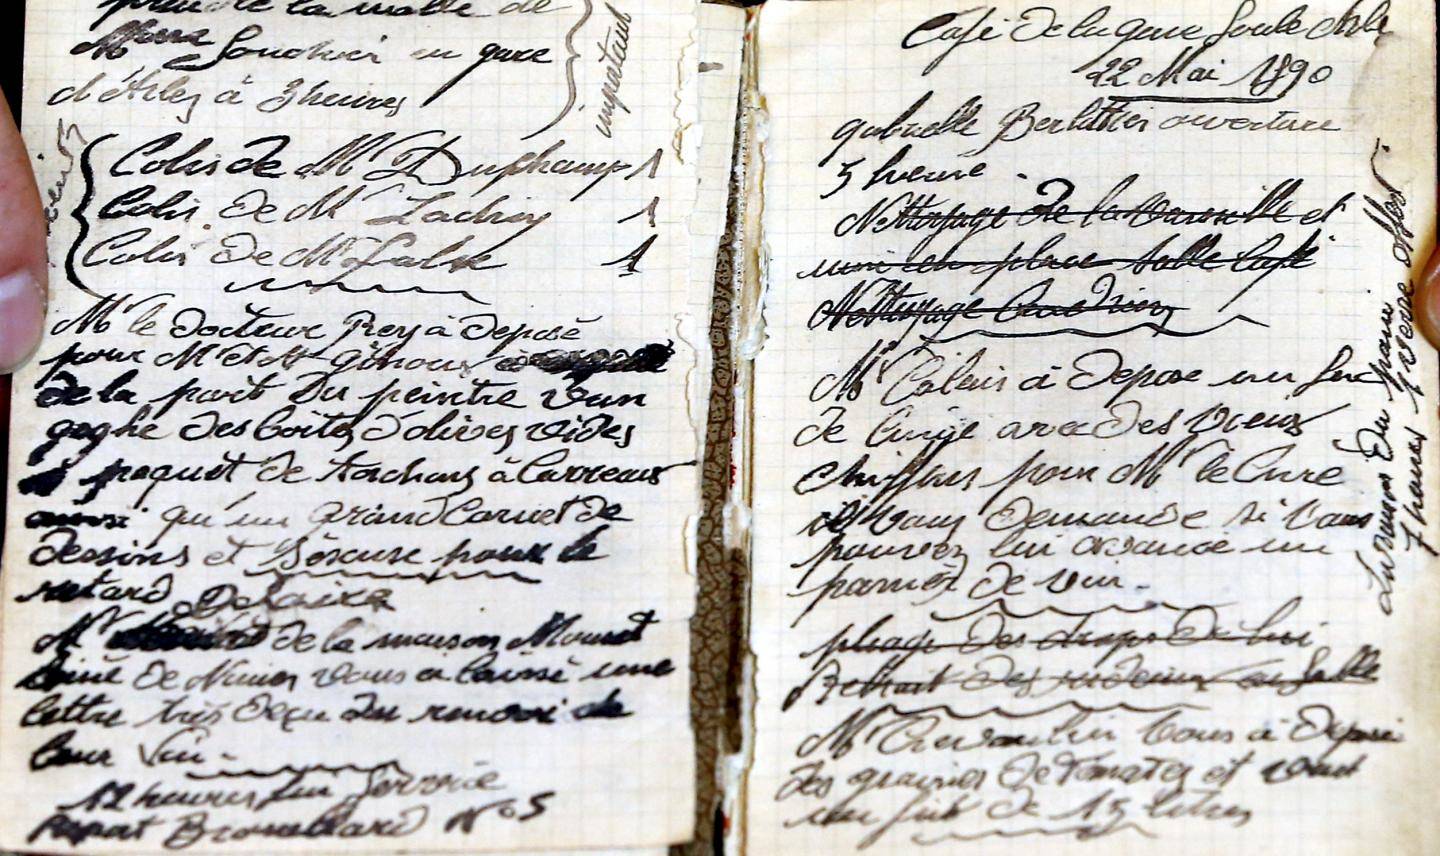 prendre la malle de
Mme en gare
d'Arles à 3 heures
important
Colis de Mr Duphamp 1
Colis de Mr 1
Colis de Mr 1
Mr le docteur Rey à deposé
pour Mr et Mme ginoux
de la part du peintre van
goghe des boites d'olives vides
paquet de torchons à carreaux
ainsi qu'un grand Carnet de
dessins et s'excuse pour le
retard
Mr de la maison Mounet
de Nimes vous à laissé une
lettre très deçu du renvoi de
leur vin.
12 heures fin service
Carnet Brouillard N° 5
Café de la gare Salle Arle
22 Mai 1890
gabrielle Berlattier ouverture
5 heure.
Nettoyage de la vaiselle et
mise en place salle café
Nettoyage
Mr Calais à depose un sac
de linge avec des vieux
chiffons pour Mr le Cure
il vous demande si vous
pouvez lui avance un
panier de vin.
pliage des draps de lui
Retrait des rideaux en salle
Mr vous à deposé
des graines de tomates et veut
un fut de 15 litres
du pain offert
7 heures 1 verre